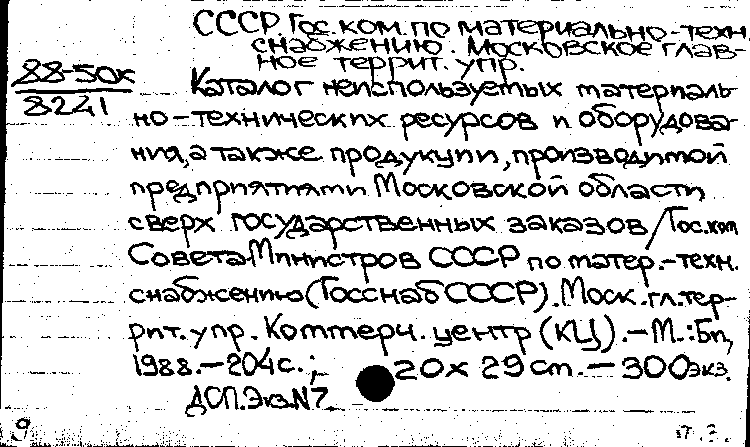 СССР. Гос. ком. по материально-техн.
снабжению. Московское глав-
ное террит. упр.
88-50к
8241
Каталог неиспользуемых материаль-
но-технических ресурсов и оборудова-
ния, а также продукции, производимой
предприятиями Московской области
сверх государственных заказов / Гос. ком
Совета Министров СССР по матер.-техн.
снабжению (Госснаб СССР). Моск. гл. тер-
рит. упр. Коммерч. центр (КЦ). — М.: Би,
1988. — 204 с.; 20 х 29 см. — 300 экз.
ДСП. Экз. N7
9